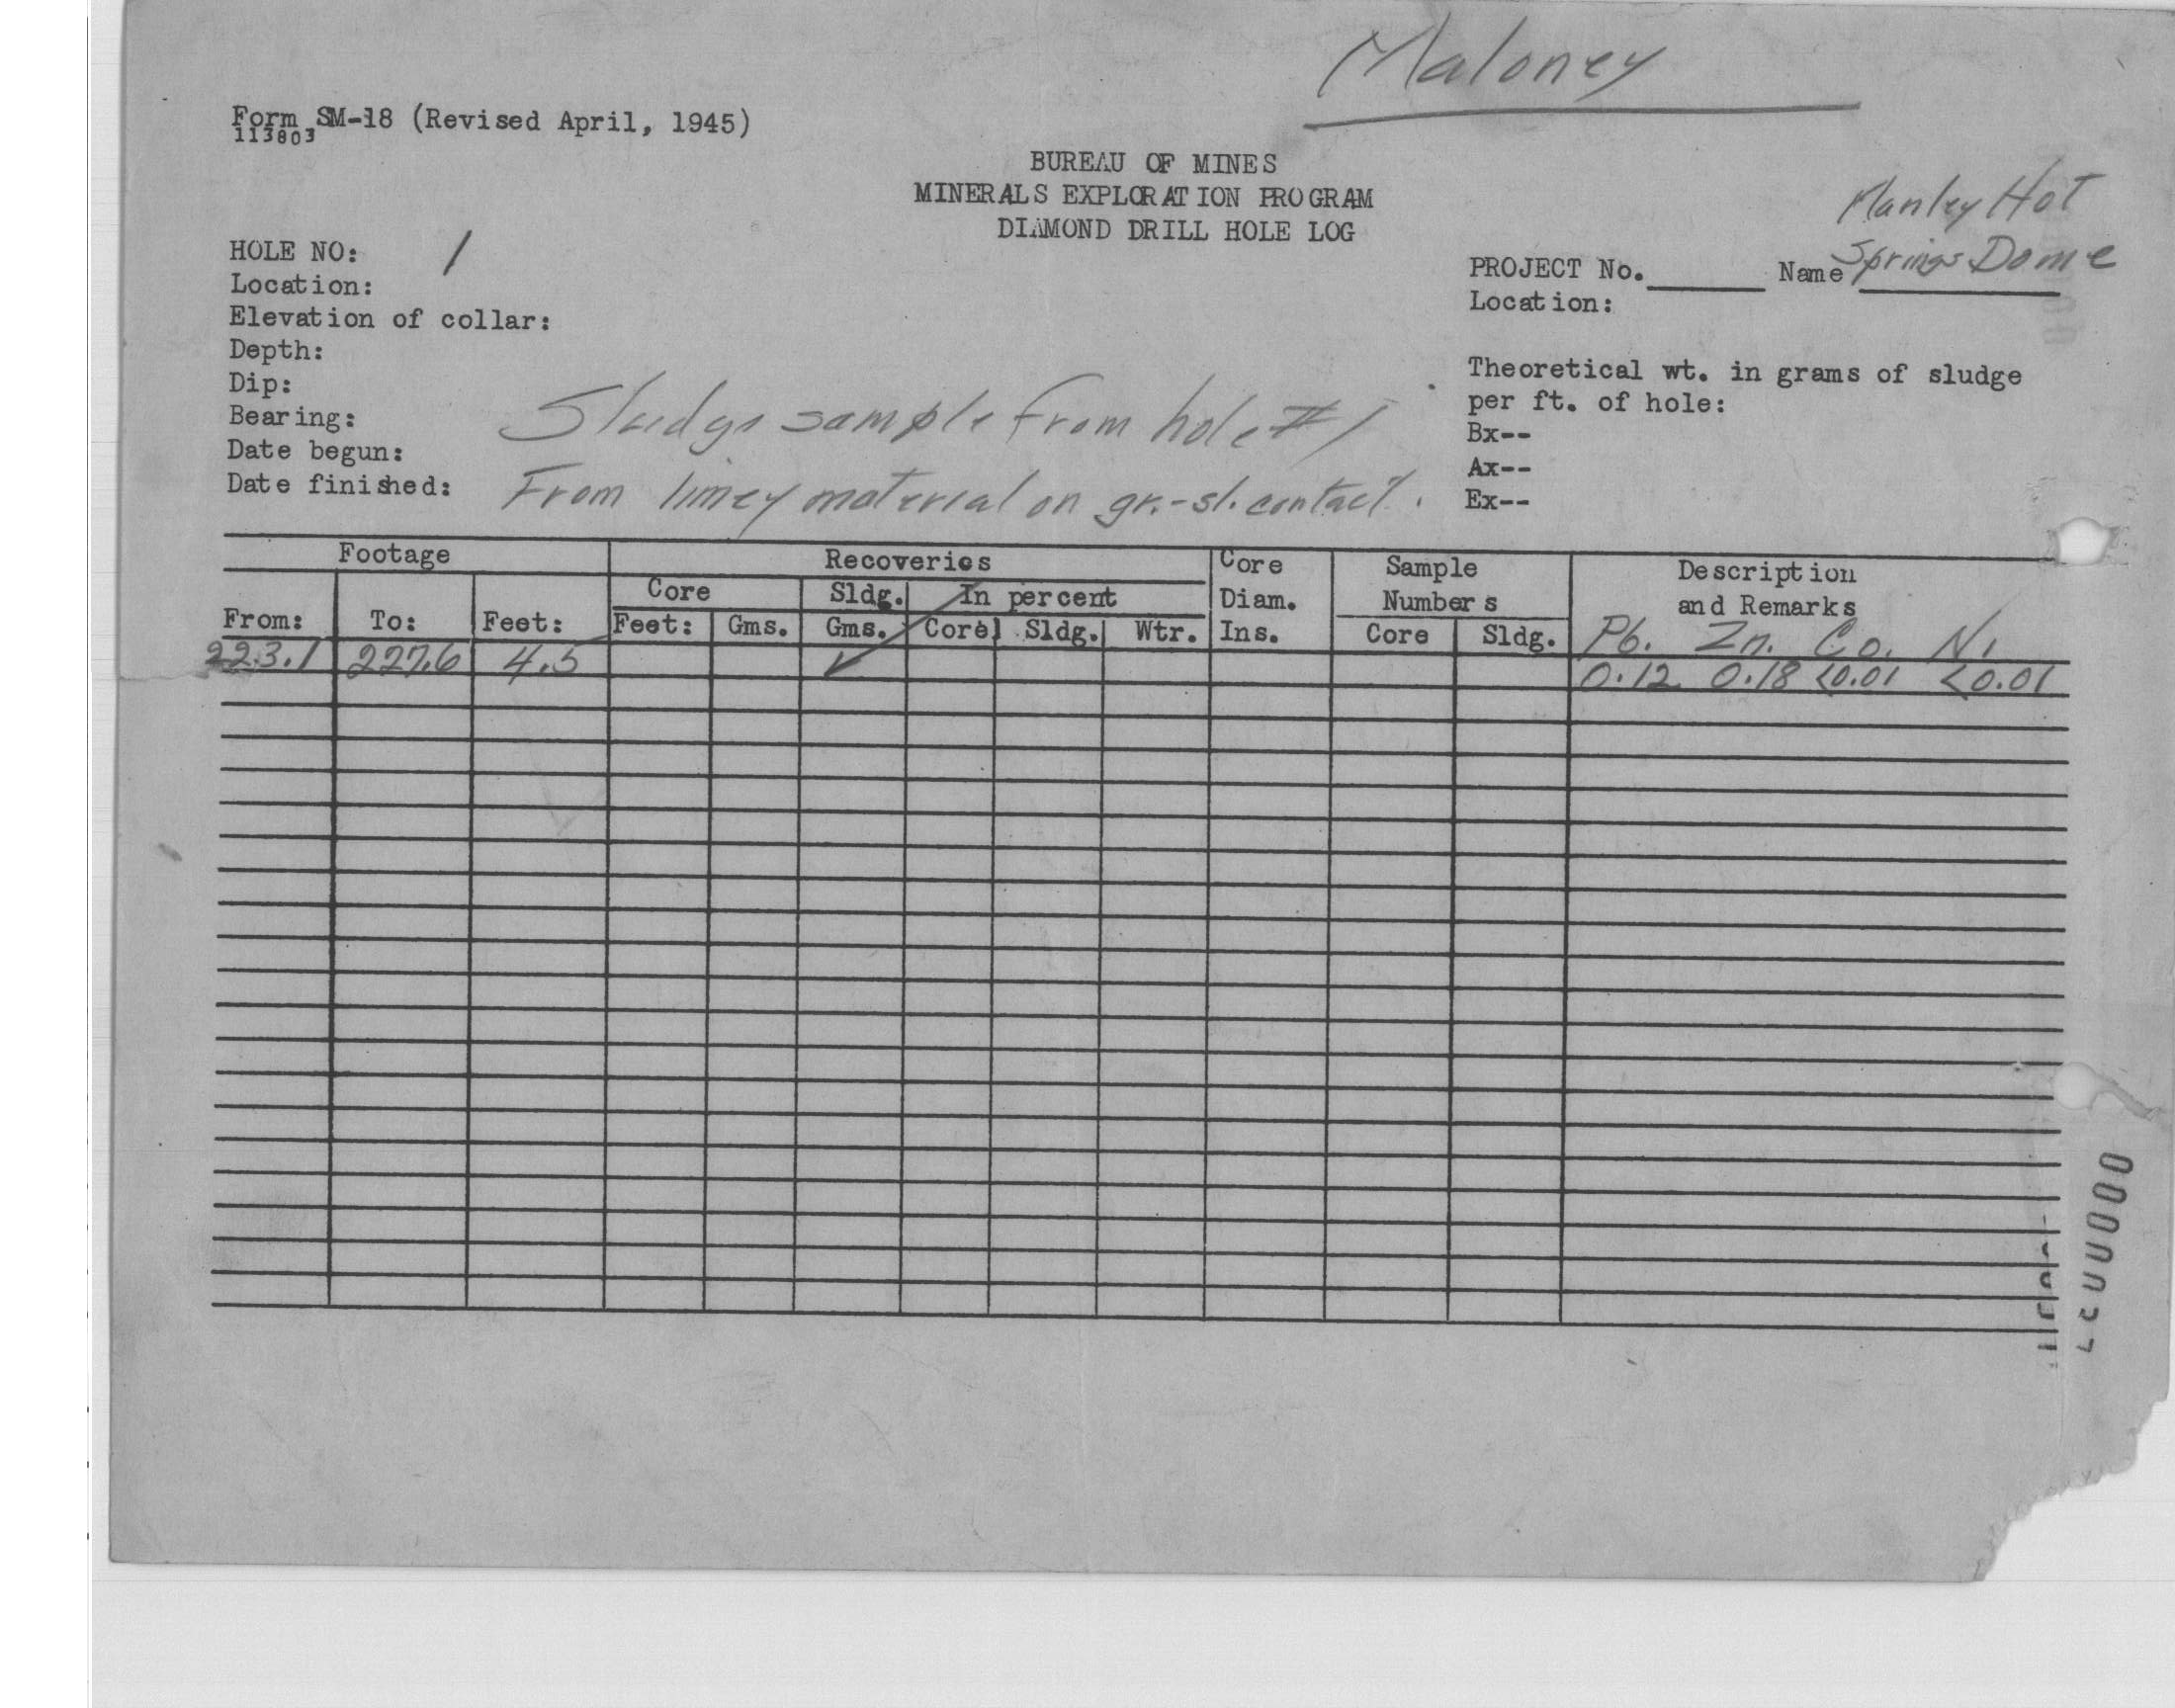 Maloney
Form SM-18 (Revised April, 1945)
113803
BUREAU OF MINES
MINERALS EXPLORATION PROGRAM
DIAMOND DRILL HOLE LOG
HOLE NO: 1
Location:
Elevation of collar:
Depth:
Dip:
Bearing:
Date begun:
Date finished:
Sludge sample from hole #1
From limey material on gr.-sl. contact.
Manley Hot
PROJECT No. Name Springs Dome
Location:
Theoretical wt. in grams of sludge
per ft. of hole:
Bx--
Ax--
Ex--
Footage Recoveries Core Sample Description
Core Sldg. In percent Diam. Numbers and Remarks
From: To: Feet: Feet: Gms. Gms. Core Sldg. Wtr. Ins. Core Sldg. Pb. Zn. Co. Ni
223.1 227.6 4.5 ✓ 0.12 0.18 <0.01 <0.01